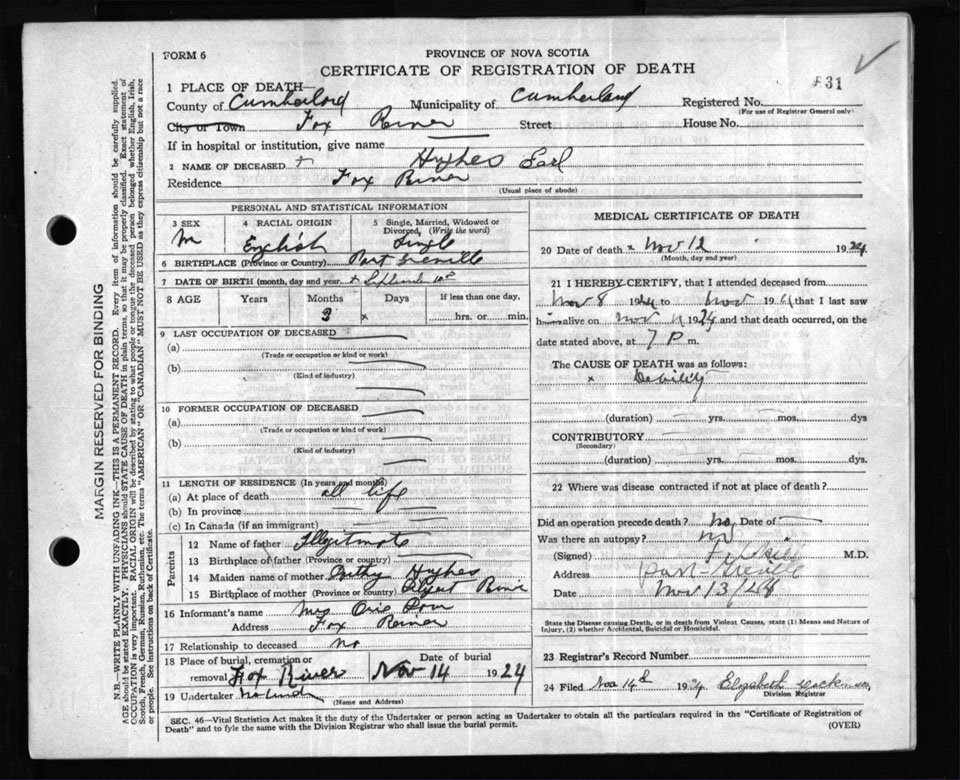 FORM 6
PROVINCE OF NOVA SCOTIA
CERTIFICATE OF REGISTRATION OF DEATH
831
1 PLACE OF DEATH—
County of Cumberland Municipality of Cumberland Registered No.
(For use of Registrar General only)
City or Town Fox River Street House No.
If in hospital or institution, give name
2 NAME OF DECEASED Hughes Earl
Residence Fox River
(Usual place of abode)
PERSONAL AND STATISTICAL INFORMATION
3 SEX
M
4 RACIAL ORIGIN
English
5 Single, Married, Widowed or Divorced, (Write the word)
Single
6 BIRTHPLACE (Province or Country) Port Greville
7 DATE OF BIRTH (month, day and year) September
8 AGE Years Months Days If less than one day,
2 x hrs. or min.
9 LAST OCCUPATION OF DECEASED
(a)
(Trade or occupation or kind or work)
(b)
(Kind of industry)
10 FORMER OCCUPATION OF DECEASED
(a)
(Trade or occupation or kind of work)
(b)
(Kind of industry)
11 LENGTH OF RESIDENCE (In Years and months)
(a) At place of death all life
(b) In province
(c) In Canada (if an immigrant)
Parents
12 Name of father Illegitimate
13 Birthplace of father (Province or country)
14 Maiden name of mother Hughes
15 Birthplace of mother (Province or country)
16 Informant's name Mrs
Address Fox River
17 Relationship to deceased no
18 Place of burial, cremation or removal Fox River
Date of burial
Nov 14 1924
19 Undertaker
(Name and Address)
MEDICAL CERTIFICATE OF DEATH
20 Date of death Nov 12 1924
(Month, day and year)
21 I HEREBY CERTIFY, that I attended deceased from
Nov 8 1924 to Nov 19 that I last saw
him alive on Nov 11 1924 and that death occurred, on the
date stated above, at 7 P m.
The CAUSE OF DEATH was as follows:
x Debility
(duration) yrs. mos. dys
CONTRIBUTORY
(Secondary)
(duration) yrs. mos. dys.
22 Where was disease contracted if not at place of death?
Did an operation precede death? no Date of
Was there an autopsy? no
(Signed) M.D.
Address Port Greville
Date Nov 13/24
State the Disease causing Death, or in death from Violent Causes, state (1) Means and Nature of
Injury, (2) whether Accidental, Suicidal or Homicidal.
23 Registrar's Record Number
24 Filed Nov 14th 1924 Elizabeth
Division Registrar
SEC. 46—Vital Statistics Act makes it the duty of the Undertaker or person acting as Undertaker to obtain all the particulars required in the "Certificate of Registration of
Death" and to fyle the same with the Division Registrar who shall issue the burial permit.
(OVER)
MARGIN RESERVED FOR BINDING
N.B.—WRITE PLAINLY WITH UNFADING INK—THIS IS A PERMANENT RECORD. Every item of information should be carefully supplied.
AGE should be stated EXACTLY. PHYSICIANS should STATE CAUSE OF DEATH in plain terms, so that it may be properly classified. Exact statement of
OCCUPATION is very important. RACIAL ORIGIN will be described by stating to what people or tongue the deceased person belonged whether English, Irish,
Scotch, French, German, Russian, Ruthenian, etc. The terms "AMERICAN" OR "CANADIAN" MUST NOT BE USED as they express citizenship but not a race
or people. See instructions on back of Certificate.